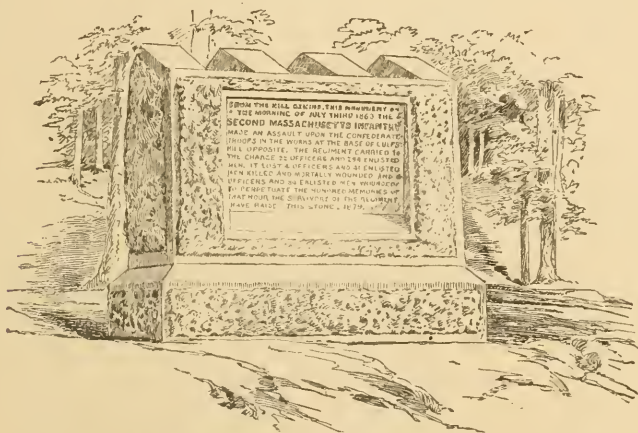 FROM THE HILL BEHIND THIS MONUMENT ON
THE MORNING OF JULY THIRD 1863 THE
SECOND MASSACHUSETTS INFANTRY
MADE AN ASSAULT UPON THE CONFEDERATE
TROOPS IN THE WORKS AT THE BASE OF CULP'S
HILL OPPOSITE. THE REGIMENT CARRIED TO
THE CHARGE 22 OFFICERS AND 294 ENLISTED
MEN. IT LOST 4 OFFICERS AND 41 ENLISTED
MEN KILLED AND MORTALLY WOUNDED AND 6
OFFICERS AND 84 ENLISTED MEN WOUNDED
TO PERPETUATE THE HONORED MEMORIES OF
THAT HOUR THE SURVIVORS OF THE REGIMENT
HAVE RAISED THIS STONE. 1879.